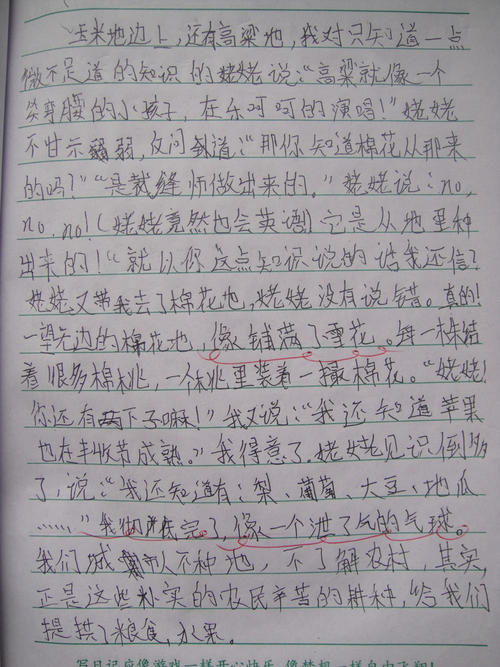 玉米地边上,还有高粱地,我对只知道一点
微不足道的知识的姥姥说:“高粱就像一个
弯腰的小孩子,在乐呵呵的演唱!”姥姥
不甘示弱,反问到道:“那你知道棉花从那来
的吗?”“是裁缝师做出来的。”姥姥说:no,
no,no!(姥姥竟然也会英语)它是从地里种
出来的!“就以你这点知识说的话我还信?
姥姥又带我去了棉花地,姥姥没有说错。真的!
一望无边的棉花地,像铺满了雪花。每一株结
着很多棉桃,一个桃里装着一撮棉花。“姥姥!
你还有两下子嘛!”我又说:“我还知道苹果
也在丰收节成熟。”我得意了。姥姥见识倒多
了,说:“我还知道有:梨、葡萄、大豆、地瓜
……”我完了,像一个泄了气的气球。
我们城人不种地,不了解农村,其实,
正是这些朴实的农民辛苦的耕种,给我们
提拱了粮食,水果。
写日记应像游戏一样开心快乐,像梦想一样自由飞翔!